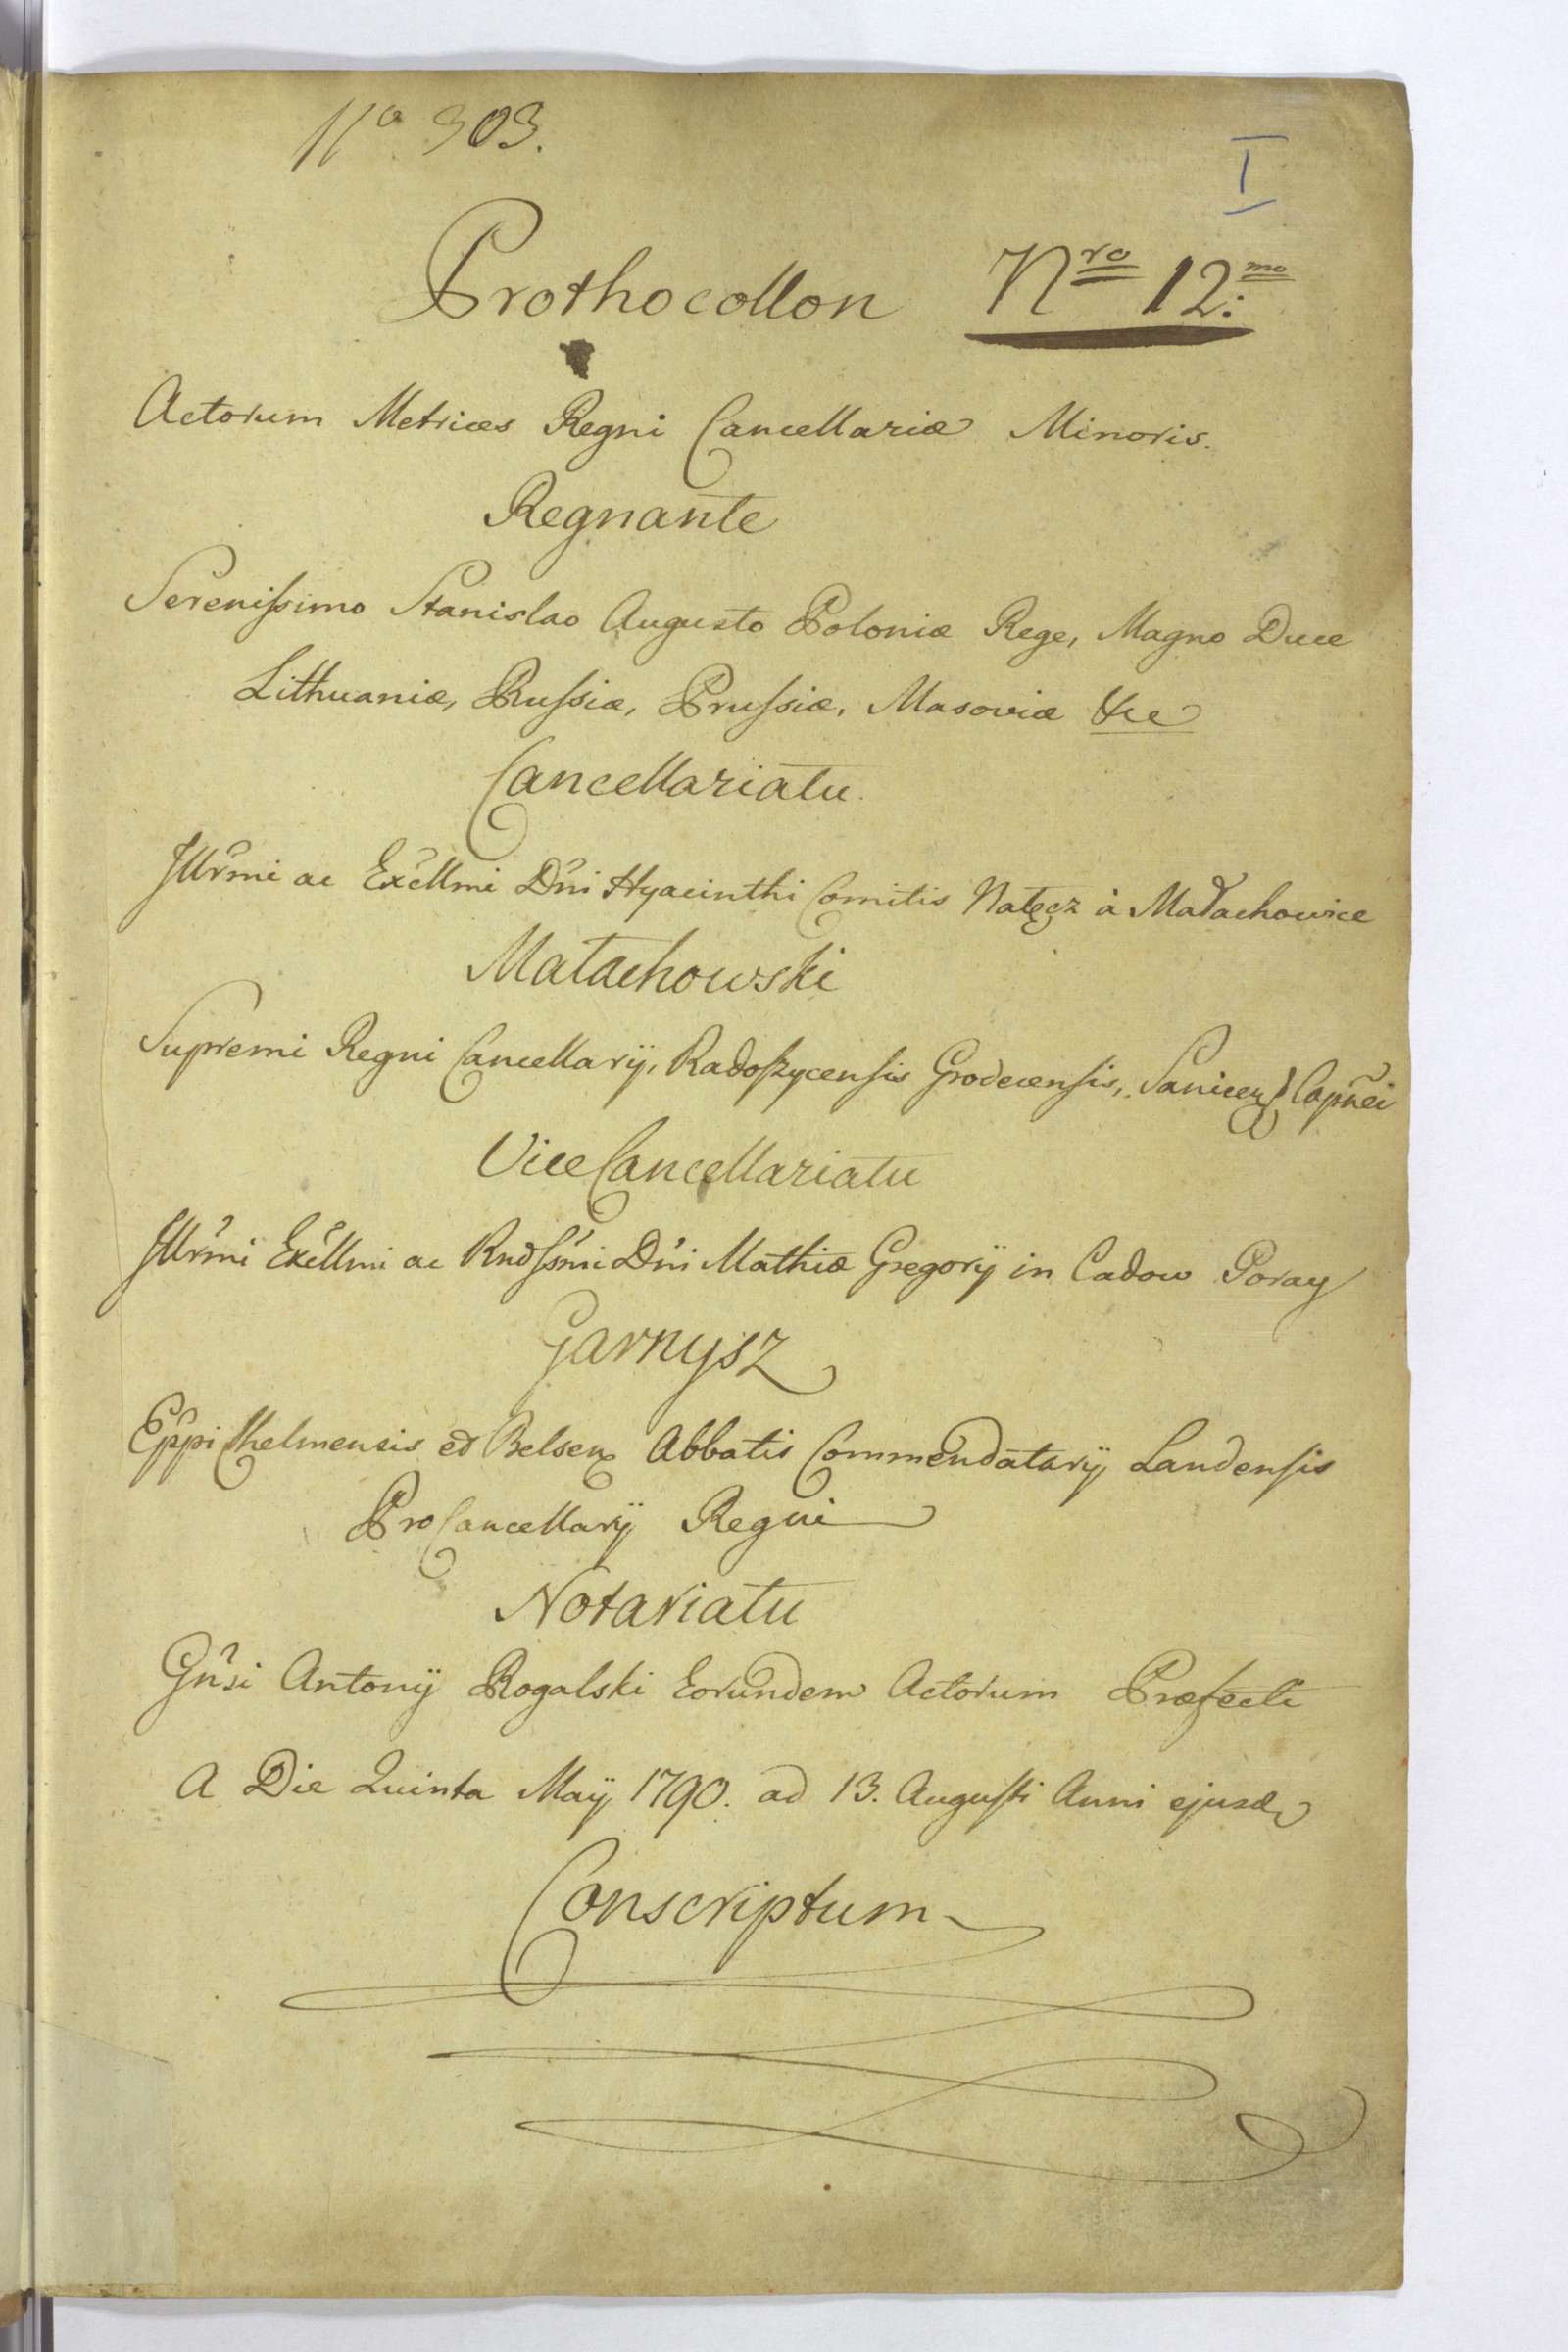 No 303.
I
Prothocollon Nro 12:mo
Actorum Metrices Regni Cancellariæ Minoris.
Regnante
Serenissimo Stanislao Augusto Poloniæ Rege, Magno Duce
Lithuaniæ, Russiæ, Prussiæ, Masoviæ &ce
Cancellariatu.
Illrmi ac Excllmi Dni Hyacinthi Comitis Nałęcz à Małachowice
Małachowski
Supremi Regni Cancellarij, Radoszycensis Grodecensis, Sanicen Capnei
ViceCancellariatu
Illrmi Excllmi ac Rndssmi Dni Mathiæ Gregorij in Cadow Poray
Garnysz
Eppi Chelmensis et Belsen Abbatis Commendatarij Landensis
ProCancellarij Regni
Notariatu
Gnsi Antonij Rogalski Eorundem Actorum Præfecti
A Die Quinta Maij 1790. ad 13. Augusti Anni ejusd
Conscriptum